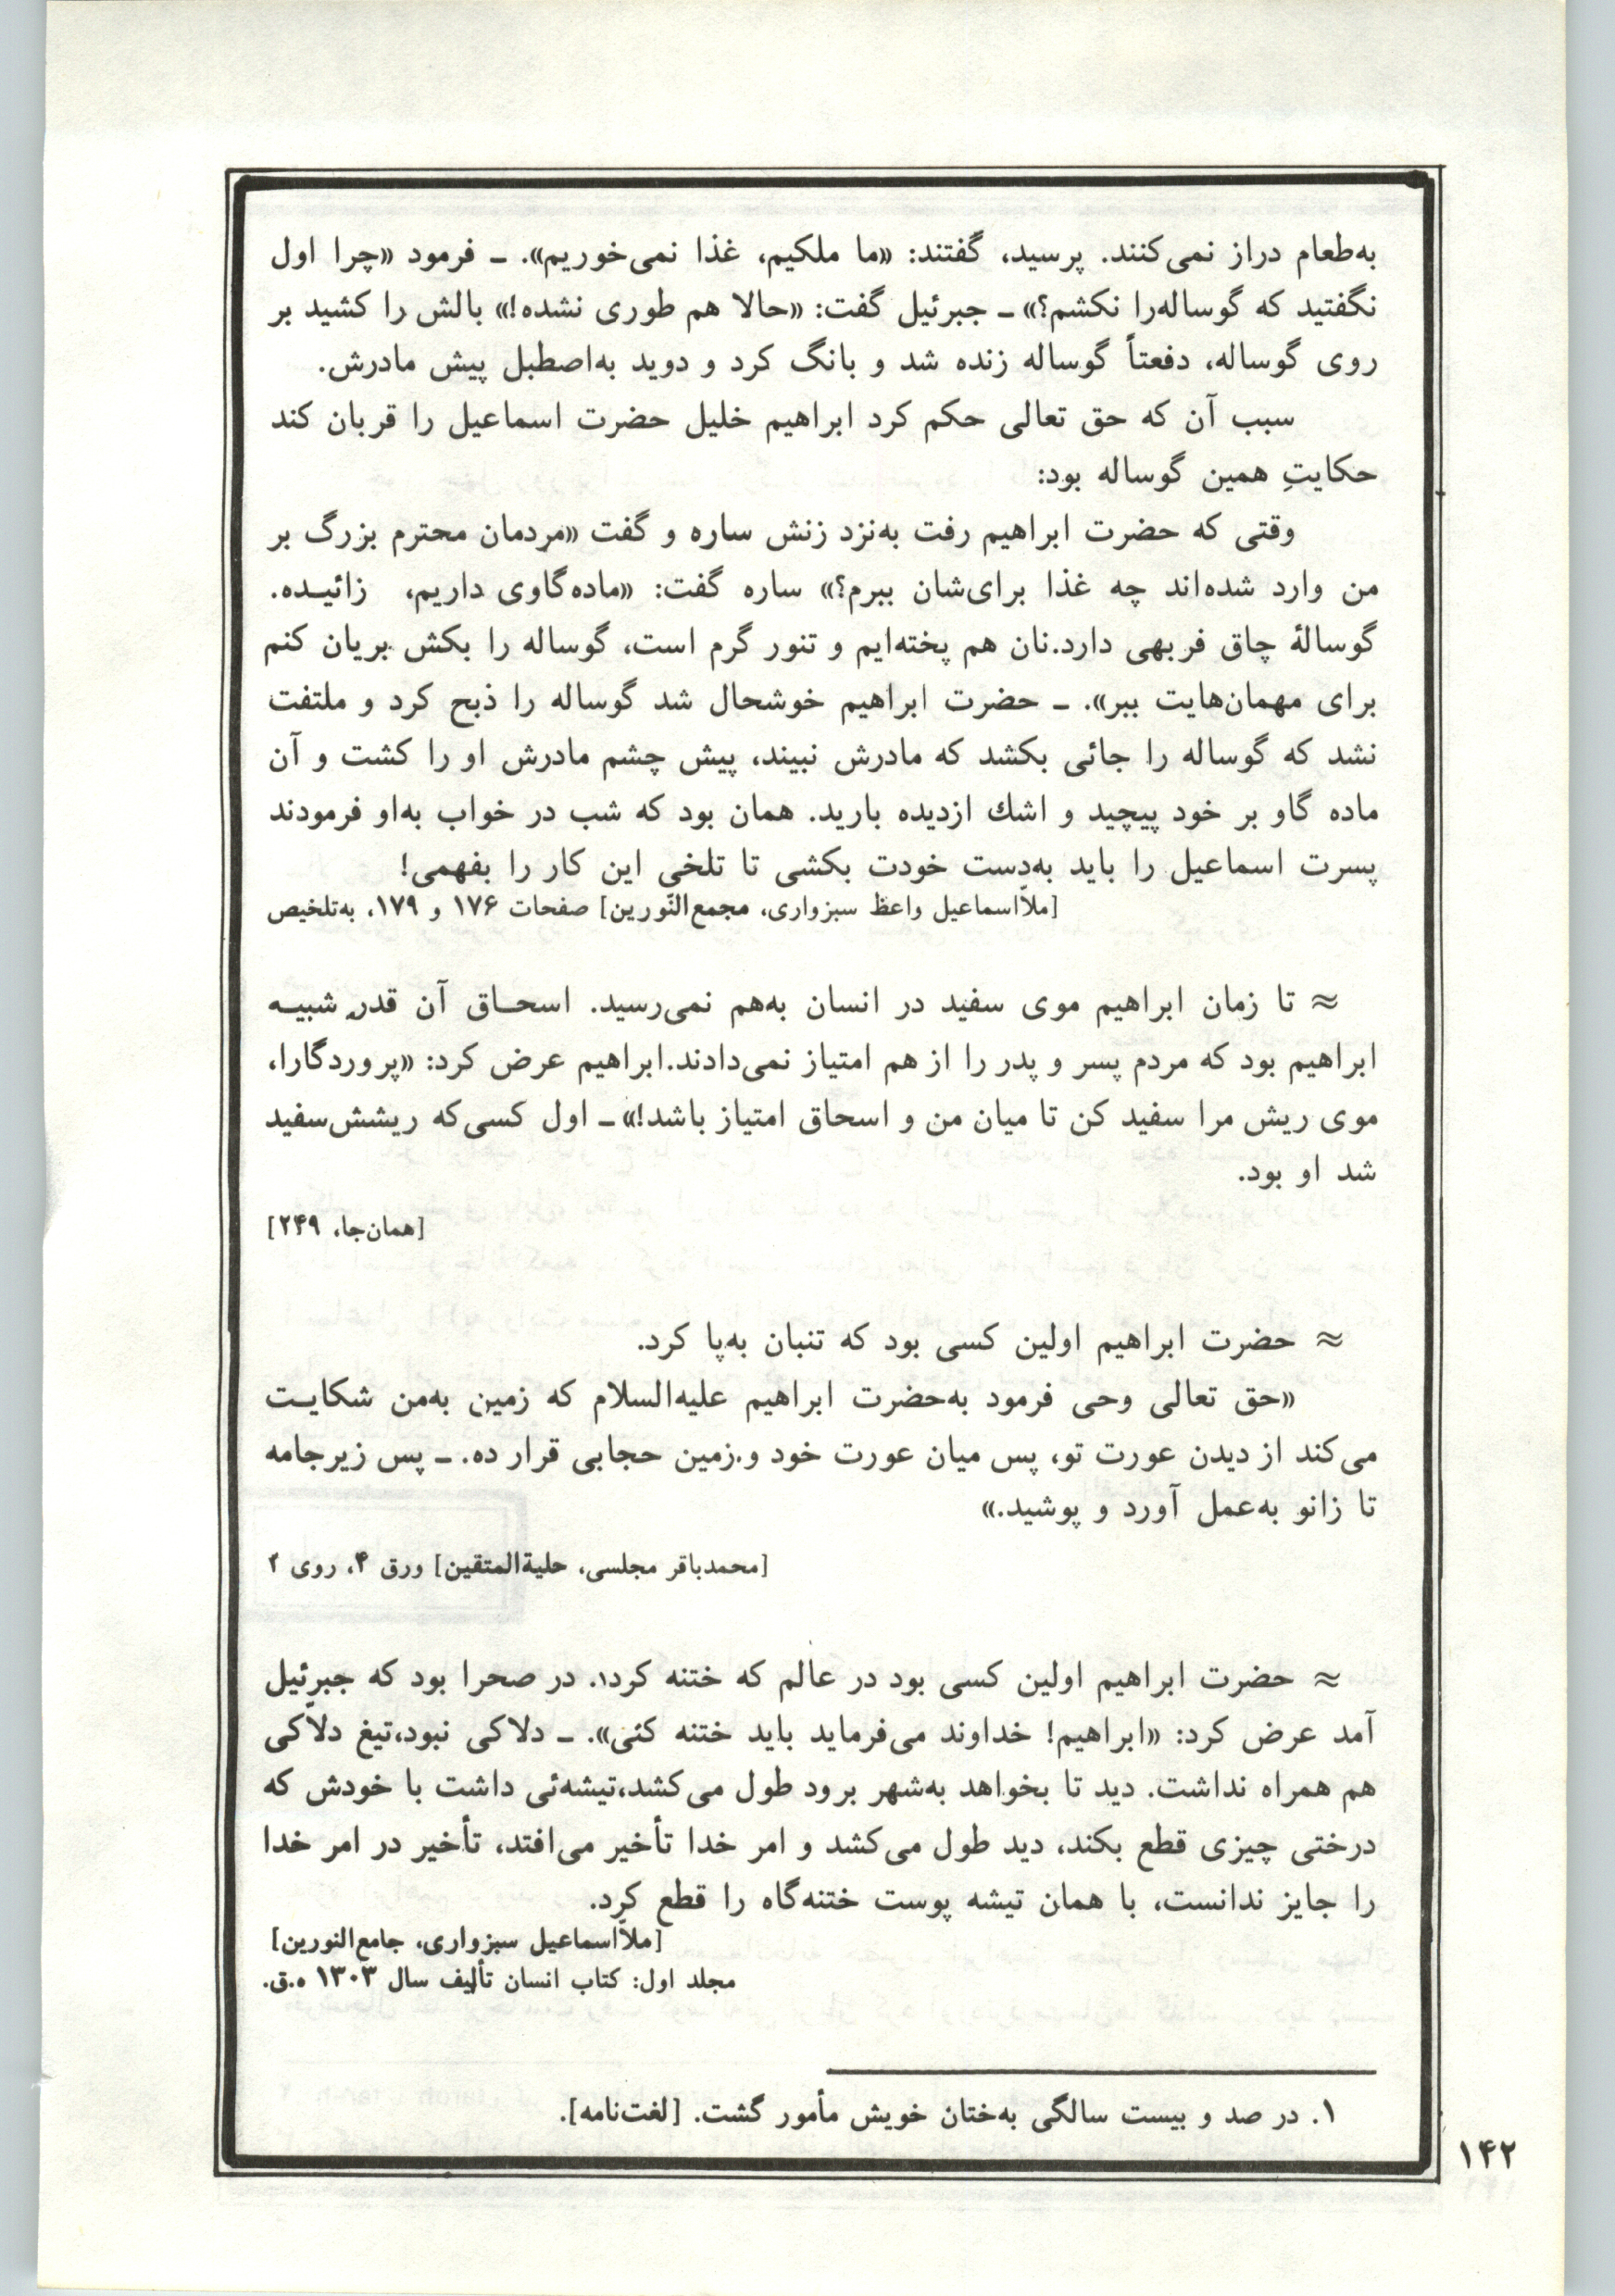 به‌طعام دراز نمی‌کنند. پرسید، گفتند: «ما ملکیم، غذا نمی‌خوریم». ـ فرمود «چرا اول
نگفتید که گوساله‌را نکشم؟» ـ جبرئیل گفت: «حالا هم طوری نشده!» بالش را کشید بر
روی گوساله، دفعتاً گوساله زنده شد و بانگ کرد و دوید به‌اصطبل پیش مادرش.
سبب آن که حق تعالی حکم کرد ابراهیم خلیل حضرت اسماعیل را قربان کند
حکایتِ همین گوساله بود:
وقتی که حضرت ابراهیم رفت به‌نزد زنش ساره و گفت «مردمان محترم بزرگ بر
من وارد شده‌اند چه غذا برای‌شان ببرم؟» ساره گفت: «ماده‌گاوی داریم، زائیـده.
گوسالهٔ چاق فربهی دارد.نان هم پخته‌ایم و تنور گرم است، گوساله را بکش بریان کنم
برای مهمان‌هایت ببر». ـ حضرت ابراهیم خوشحال شد گوساله را ذبح کرد و ملتفت
نشد که گوساله را جائی بکشد که مادرش نبیند، پیش چشم مادرش او را کشت و آن
ماده گاو بر خود پیچید و اشك ازدیده بارید. همان بود که شب در خواب به‌او فرمودند
پسرت اسماعیل را باید به‌دست خودت بکشی تا تلخی این کار را بفهمی!
[ملاّاسماعیل واعظ سبزواری، مجمع‌النّورین] صفحات ۱۷۶ و ۱۷۹، به‌تلخیص
≈ تا زمان ابراهیم موی سفید در انسان به‌هم نمی‌رسید. اسحـاق آن قدر شبیـه
ابراهیم بود که مردم پسر و پدر را از هم امتیاز نمی‌دادند.ابراهیم عرض کرد: «پروردگارا،
موی ریش مرا سفید کن تا میان من و اسحاق امتیاز باشد!» ـ اول کسی‌که ریشش‌سفید
شد او بود.
[همان‌جا، ۲۴۹]
≈ حضرت ابراهیم اولین کسی بود که تنبان به‌پا کرد.
«حق تعالی وحی فرمود به‌حضرت ابراهیم علیه‌السلام که زمین به‌من شکایـت
می‌کند از دیدن عورت تو، پس میان عورت خود و زمین حجابی قرار ده. ـ پس زیرجامه
تا زانو به‌عمل آورد و پوشید.»
[محمدباقر مجلسی، حلیةالمتقین] ورق ۴، روی ۲
≈ حضرت ابراهیم اولین کسی بود در عالم که ختنه کرد۱. در صحرا بود که جبرئیل
آمد عرض کرد: «ابراهیم! خداوند می‌فرماید باید ختنه کنی». ـ دلاکی نبود،تیغ دلاّکی
هم همراه نداشت. دید تا بخواهد به‌شهر برود طول می‌کشد،تیشه‌ئی داشت با خودش که
درختی چیزی قطع بکند، دید طول می‌کشد و امر خدا تأخیر می‌افتد، تأخیر در امر خدا
را جایز ندانست، با همان تیشه پوست ختنه‌گاه را قطع کرد.
[ملاّاسماعیل سبزواری، جامع‌النورین]
مجلد اول: کتاب انسان تألیف سال ۱۳۰۳ ه.ق.
۱. در صد و بیست سالگی به‌ختان خویش مأمور گشت. [لغت‌نامه].
۱۴۲